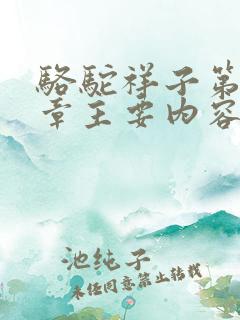 骆駝祥子第
章主要内容
池纯子
未经同意禁止转载